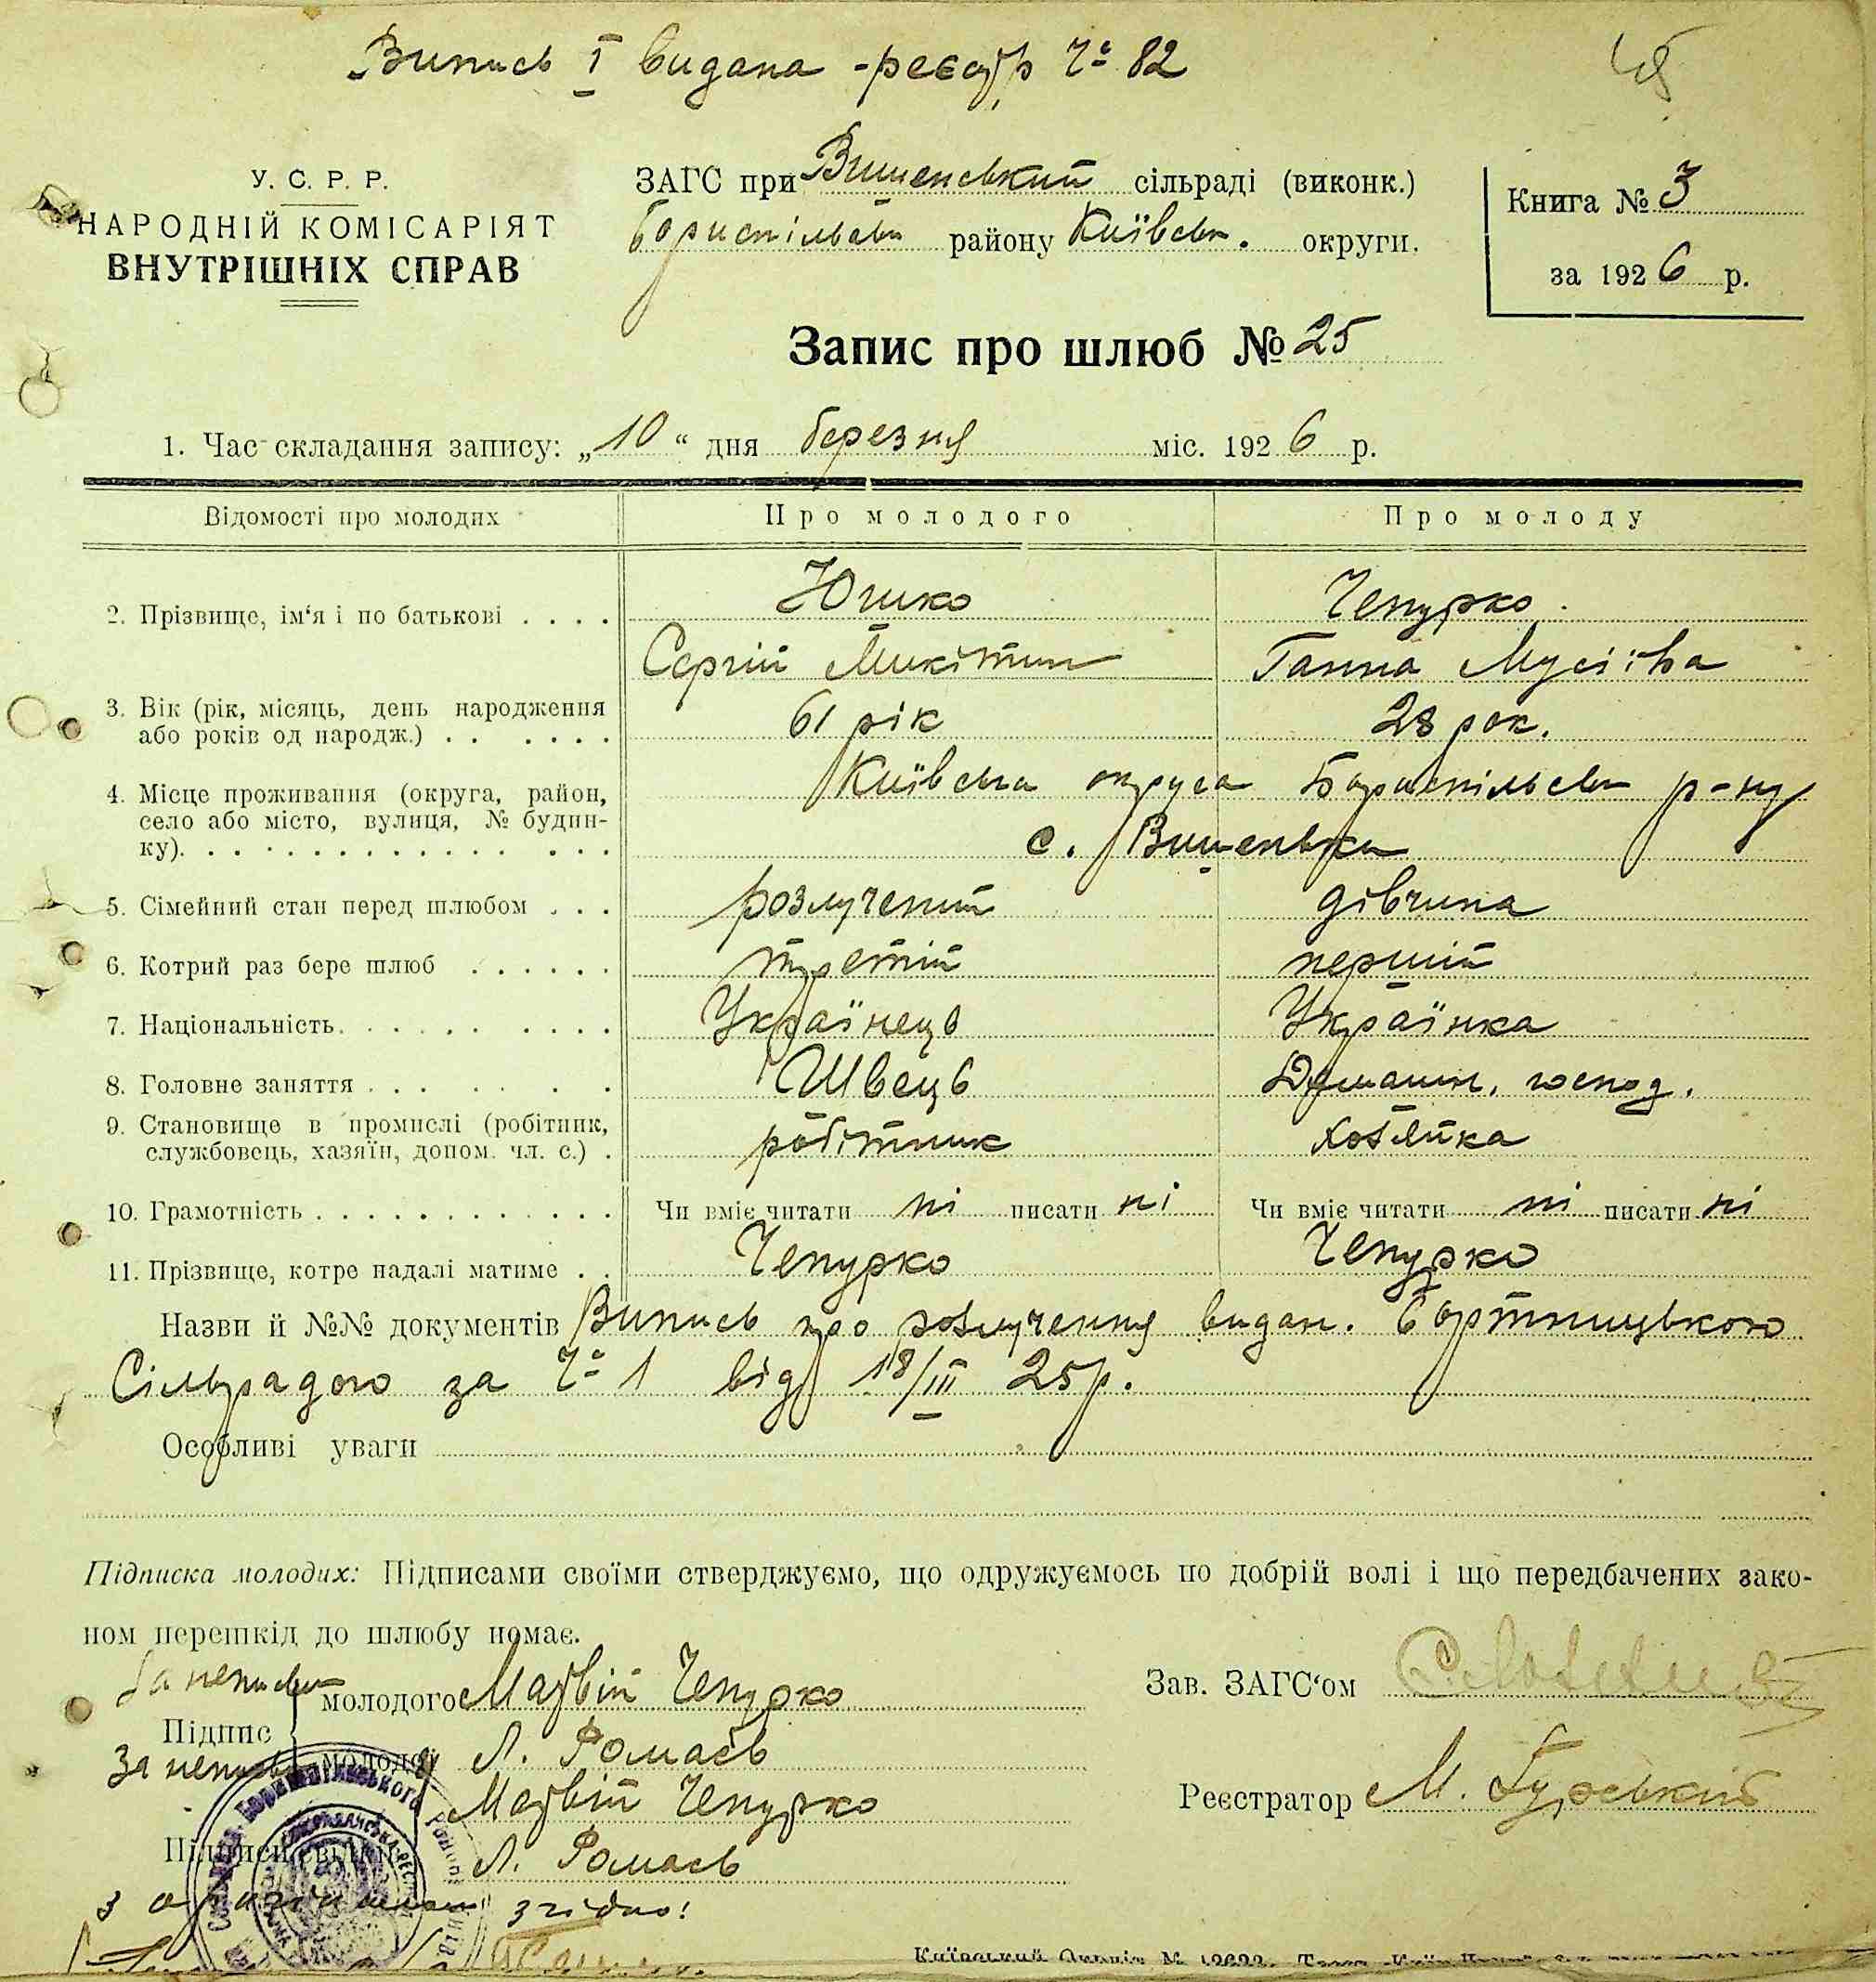 Випись І видана - реєстр Ч° 82
У. С. Р. Р.
НАРОДНІЙ КОМІСАРІЯТ
ВНУТРІШНІХ СПРАВ
ЗАГС при Вишенський сільраді (виконк.)
Бориспільськ району Київськ. округи.
Книга № 3
за 1926 р.
Запис про шлюб № 25
1. Час складання запису: „10“ дня березня міс. 1926 р.
Відомості про молодих Про молодого Про молоду
2. Прізвище, ім‘я і по батькові . . . . Юшко Чепурко
Сергій Микітин Ганна Мусіїва
3. Вік (рік, місяць, день народження
або років од народж.) . . . . . . 61 рік 28 рок.
4. Місце проживання (округа, район,
село або місто, вулиця, № будин-
ку). Київська округа Бориспільськ р-ну
с. Вишеньки
5. Сімейний стан перед шлюбом . . . розлучений дівчина
6. Котрий раз бере шлюб . . . . . . третій перший
7. Національність. . . . . . . . . Українець Українка
8. Головне заняття . . . . . . . Швець Домашн. господ.
9. Становище в промислі (робітник,
службовець, хазяїн, допом. чл. с.) . робітник хозяйка
10. Грамотність . . . . . . . . . . . . Чи вміє читати ні писати ні Чи вміє читати ні писати ні
11. Прізвище, котре надалі матиме . . Чепурко Чепурко
Назви й №№ документів Випись про розлучення видан. Бортницькою
Сільрадою за Ч° 1 від 18/III 25р.
Особливі уваги
Підписка молодих: Підписами своїми стверджуємо, що одружуємось по добрій волі і що передбачених зако-
ном перешкід до шлюбу немає.
За неписьм
Підпис
молодого Матвій Чепурко
За неписьм молодої Л. Ромась
Матвій Чепурко
Підписи свідків Л. Ромась
Зав. ЗАГС‘ом
Реєстратор М. Гурський
з оригіналом згідно!